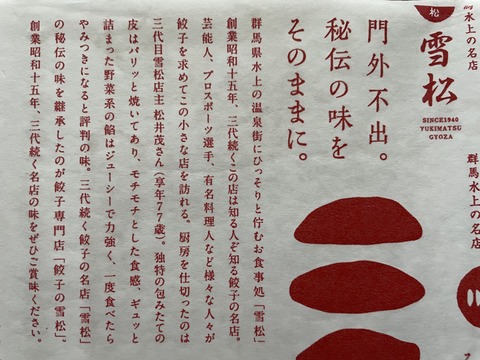 水上の名店
松
雪松
SINCE1940
YUKIMATSU
GYOZA
群馬水上の名店
門外不出。
秘伝の味を
そのままに。
群馬県水上の温泉街にひっそりと佇むお食事処「雪松」
創業昭和十五年、三代続くこの店は知る人ぞ知る餃子の名店。
芸能人、プロスポーツ選手、有名料理人など様々な人々が
餃子を求めてこの小さな店を訪れる。厨房を仕切ったのは
三代目雪松店主 松井茂さん(享年77歳)。独特の包みたての
皮はパリッと焼いてあり、モチモチとした食感、ギュッと
詰まった野菜系の餡はジューシーで力強く、一度食べたら
やみつきになると評判の味。三代続く餃子の名店「雪松」
の秘伝の味を継承したのが餃子専門店「餃子の雪松」。
創業昭和十五年、三代続く名店の味をぜひご賞味ください。